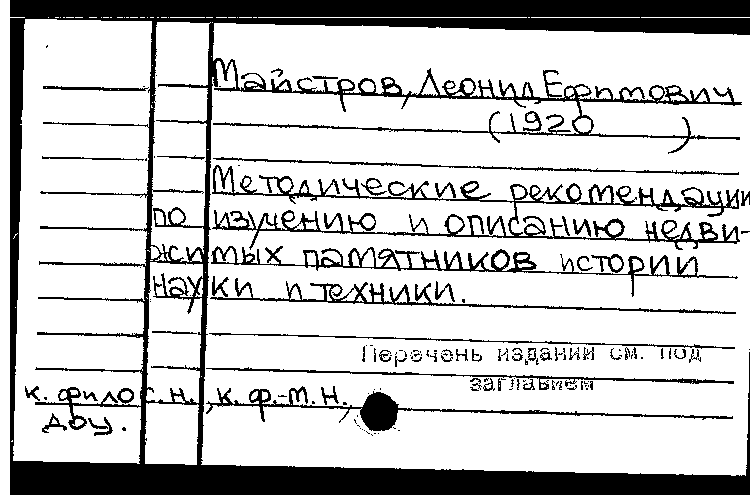 Майстров, Леонид Ефимович
(1920      )
Методические рекомендации
по изучению и описанию недви-
жимых памятников истории
науки и техники.
Перечень изданий см. под
заглавием
к. филос. н., к. ф.-м. н.,
доц.